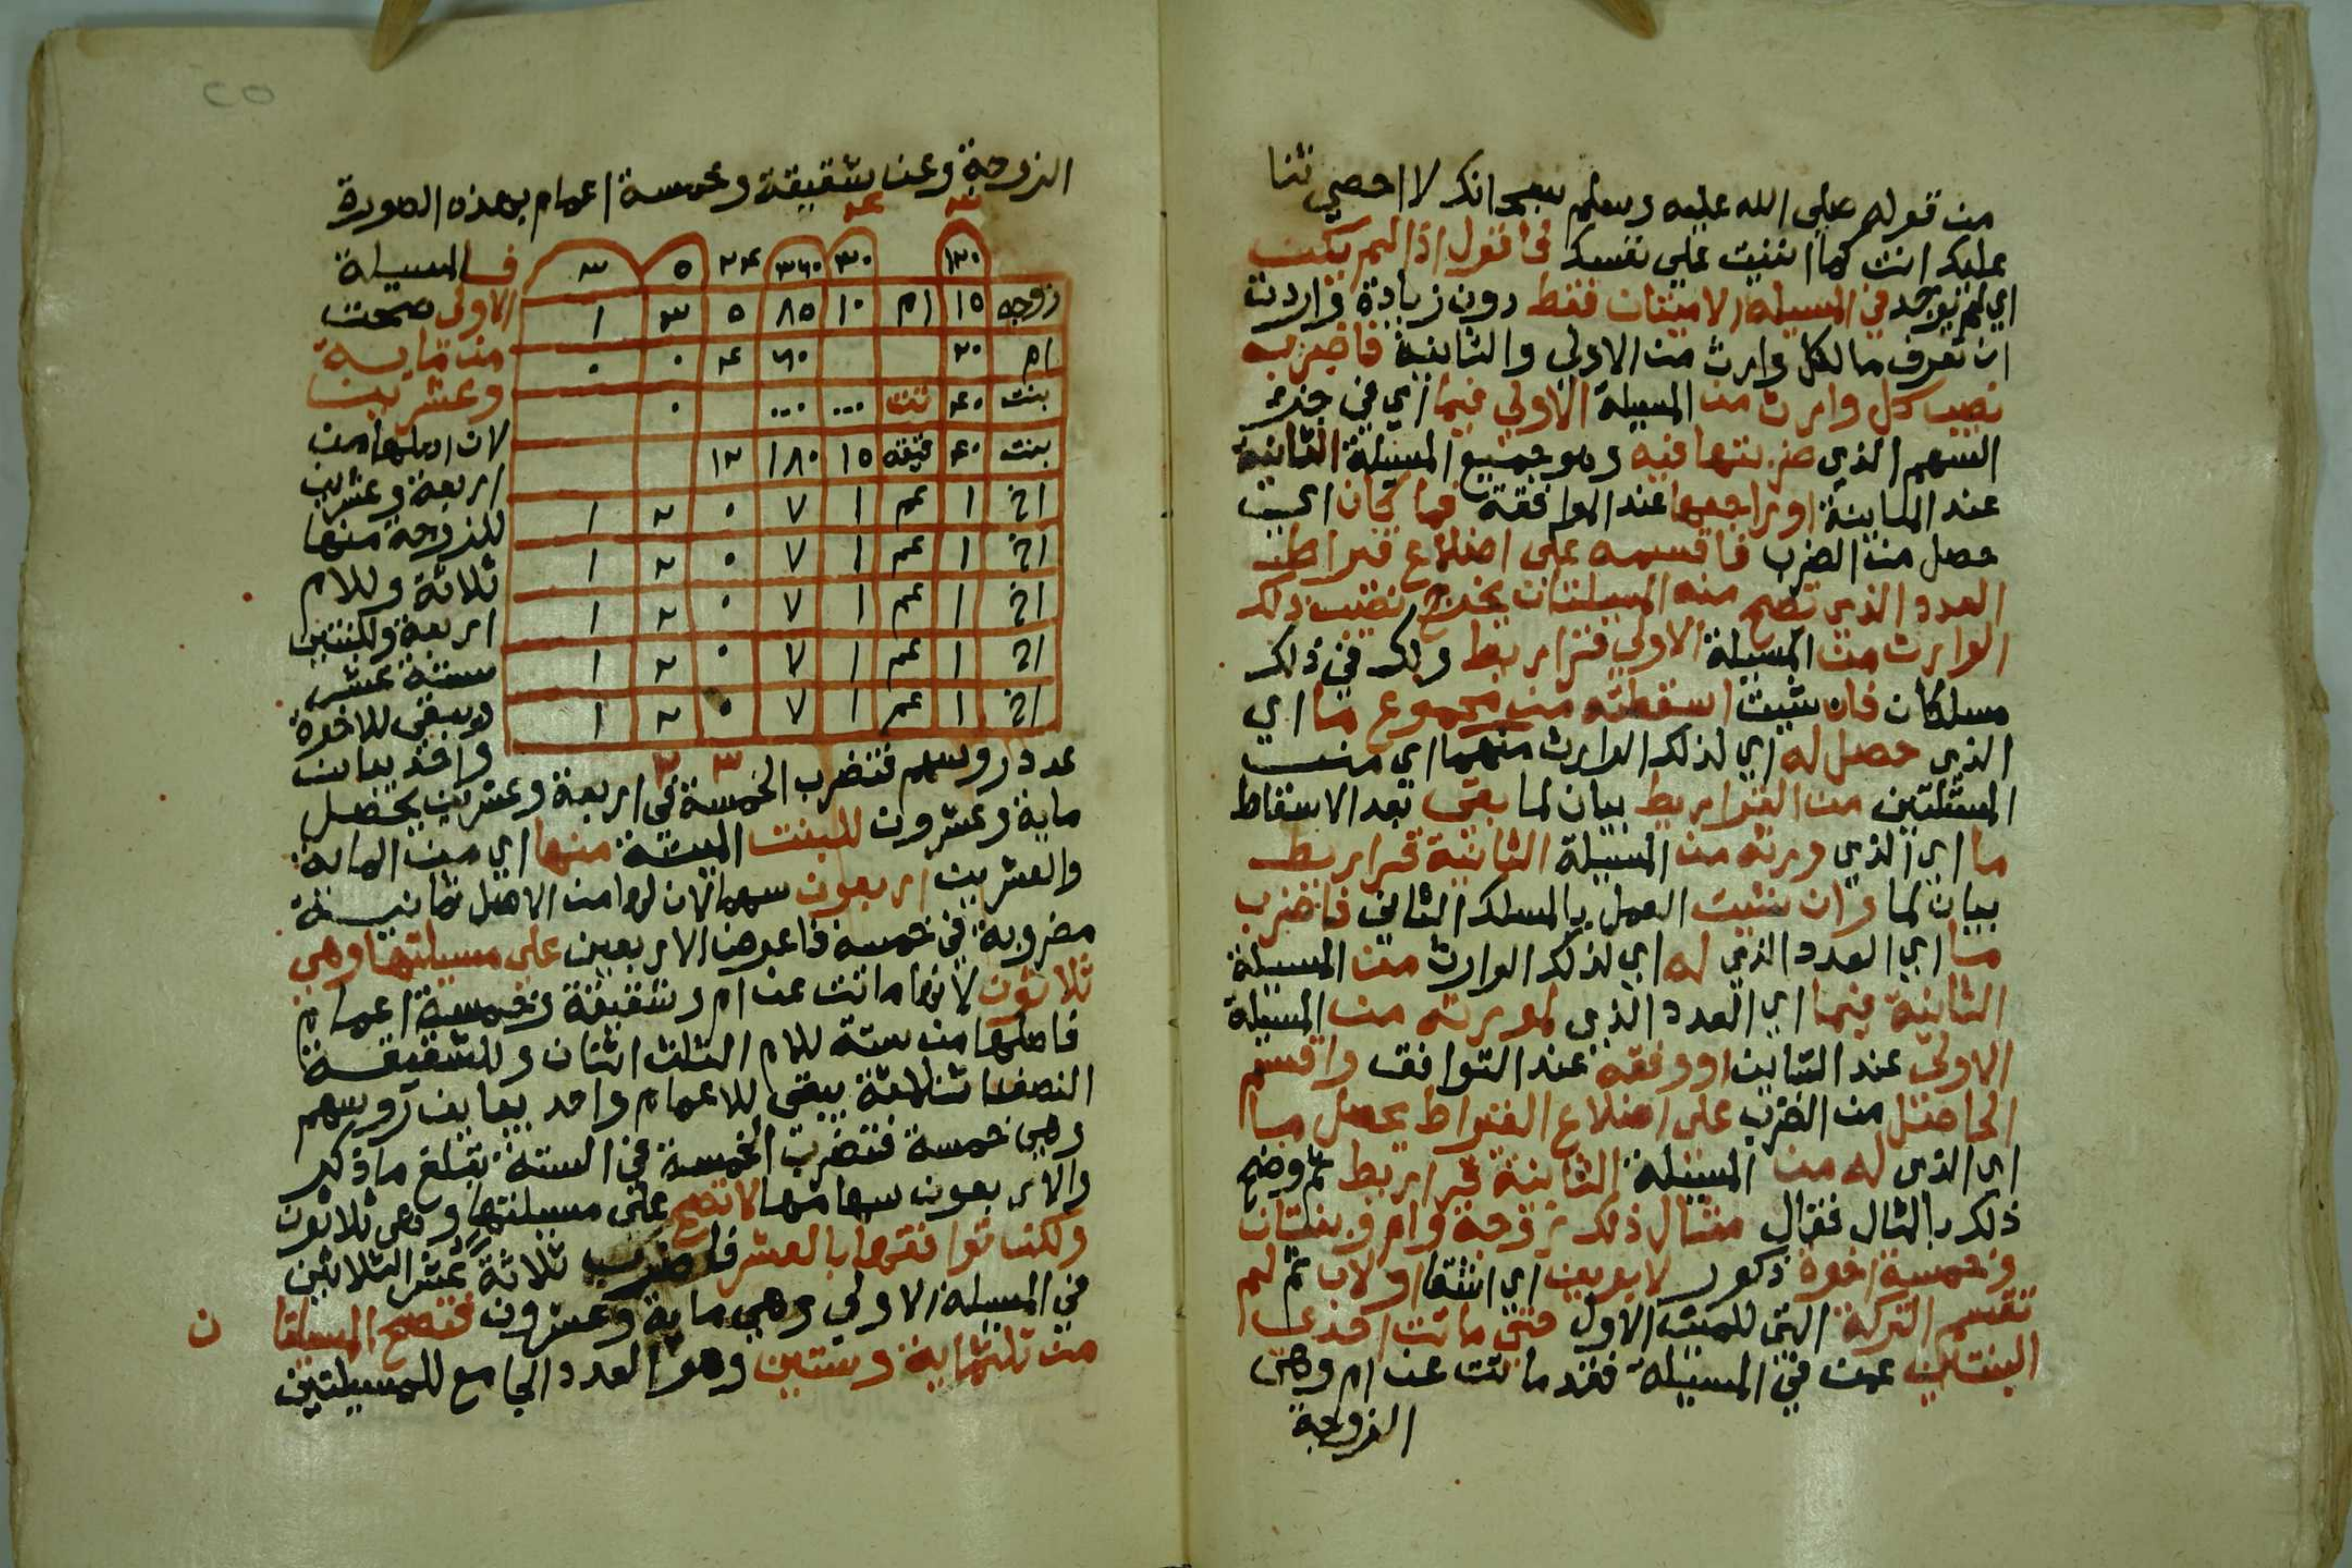 من قوله صلي الله عليه وسلم سبحانك لا احصي ثنا
عليك انت كما اثنيت علي نفسك فاقول اذا لم يكن
اي لم يوجد في المسيلة الا ميتان فقط دون زيادة واردت
ان تعرف ما لكل وارث من الاولي والثانية فاضرب
نصيب كل وارث من المسيلة الاولي فيما اي في جزء
السهم الذي ضربتها فيه وهو جميع المسيلة الثانية
عند المباينة او راجعها عند الموافقة فما كان اي
حصل من الضرب فاقسمه على اضلاع قيراط
العدد الذي تصح منه المسيلتان يخرج نصيب ذلك
الوارث من المسيلة الاولي قراريط ولك في ذلك
مسلكان فان شيت اسقطته من مجموع ما اي
الذي حصل له اي لذلك الوارث منهما اي من
المسئلتين من القراريط بيان لما بقي بعد الاسقاط
ما اي الذي ورثه من المسيلة الثانية قراريط
بيان لما وان شيت العمل بالمسلك الثاني فاضرب
ما اي العدد الذي له اي لذلك الوارث من المسيلة
الثانية فيما اي العدد الذي لمورثه من المسيلة
الاولي عند التباين او وفقه عند التوافق واقسم
الحاصل من الضرب على اضلاع القيراط يحصل ما
اي الذي له من المسيلة الثانية قراريط ثم وضح
ذلك بالمثال فقال مثال ذلك زوجة وام وبنتان
وخمسة اخوة ذكور لابوين اي اشقا او لاب ثم لم
تقسم التركة التي للميت الاول حتي ماتت احدي
البنتين عمن في المسيلة فقد ماتت عن ام وهي
الزوجة
الزوجة وعن شقيقة وخمسة اعمام بهذه الصورة
١٢٠ ٣٠ ٣٦٠ ٢٤ ٥ ٣
زوجه ١٥ ام ١٠ ٨٥ ٥ ٣ ١
ام ٢٠ ٦٠ ٤ ٠ ٠
بنت ٤٠ تت ... ... ٠
بنت ٤٠ قيقه ١٥ ١٨٠ ١٢
اخ ١ عم ١ ٧ ٠ ٢ ١
اخ ١ عم ١ ٧ ٠ ٢ ١
اخ ١ عم ١ ٧ ٠ ٢ ١
اخ ١ عم ١ ٧ ٠ ٢ ١
اخ ١ عم ١ ٧ ٠ ٢ ١
فالمسيلة
الاولي صحت
من ماية
وعشرين
لان اصلها من
اربعة وعشرين
للزوجة منها
ثلاثة وللام
اربعة وللبنتين
ستة عشر
ويبقي للاخوة
واحد يباين
عدد روسهم فتضرب الخمسة في اربعة وعشرين يحصل
ماية وعشرون للبنت الميتة منها اي من الماية
والعشرين اربعون سهما لان لها من الاصل ثمانية
مضروبة في خمسة فاعرض الاربعين علي مسيلتها وهي
ثلاثون لانها ماتت عن ام وشقيقة وخمسة اعمام
فاصلها من ستة للام الثلث اثنان وللشقيقة
النصف ثلاثة يبقي للاعمام واحد يباين روسهم
وهي خمسة فتضرب الخمسة في الستة تبلغ ما ذكر
والاربعون سهامها لا تصح على مسيلتها وهي ثلاثون
ولكن توافقها بالعشر فاضرب ثلاثة عشر الثلاثين
في المسيلة الاولي وهي ماية وعشرون فتصح المسيلتا ن
من ثلثماية وستين وهو العدد الجامع للمسيلتين